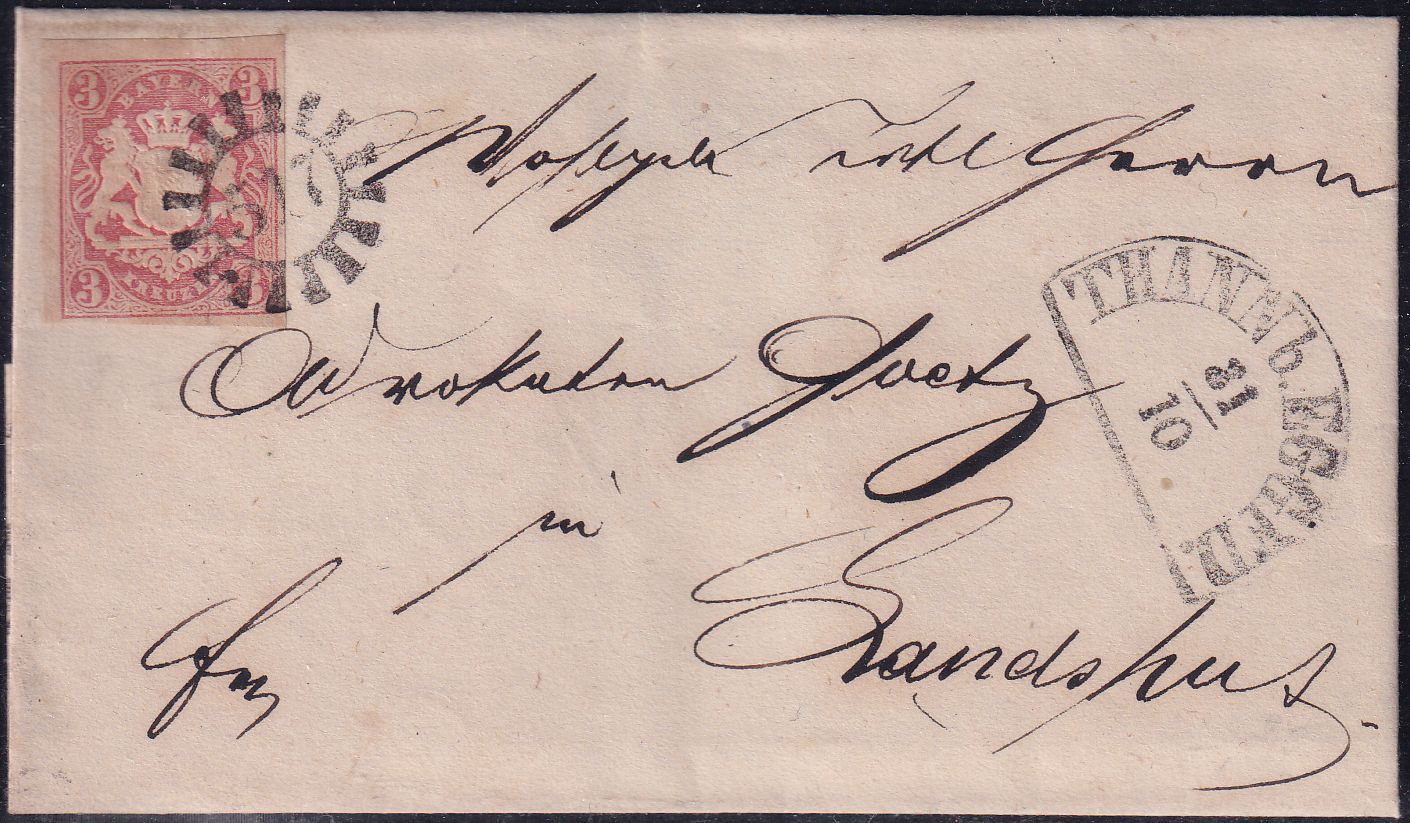 3 BAYERN 3
3 KREUZER
Herrn
Advokaten Goetz
in
Landshut
THANN b. EGGENFD:
31
10